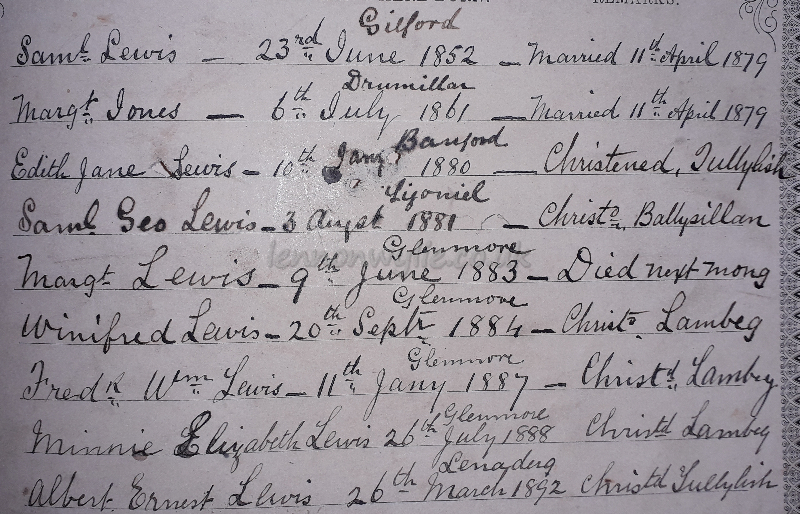 REMARKS.
Gilford
Saml Lewis — 23rd June 1852 — Married 11th April 1879
Drumillar
Margt Jones — 6th July 1861 — Married 11th April 1879
Banford
Edith Jane Lewis - 10th Jany 1880 — Christened, Tullylish
Ligoniel
Saml Geo Lewis - 3 Augst 1881 — Christd, Ballysillan
Glenmore
Margt Lewis - 9th June 1883 - Died next mong
Glenmore
Winifred Lewis - 20th Septr 1884 — Christd, Lambeg
Glenmore
Fredk Wm Lewis - 11th Jany 1887 — Christd, Lambeg
Glenmore
Minnie Elizabeth Lewis 26th July 1888 Christd Lambeg
Lenaderg
Albert Ernest Lewis 26th March 1892 Christd Tullylish